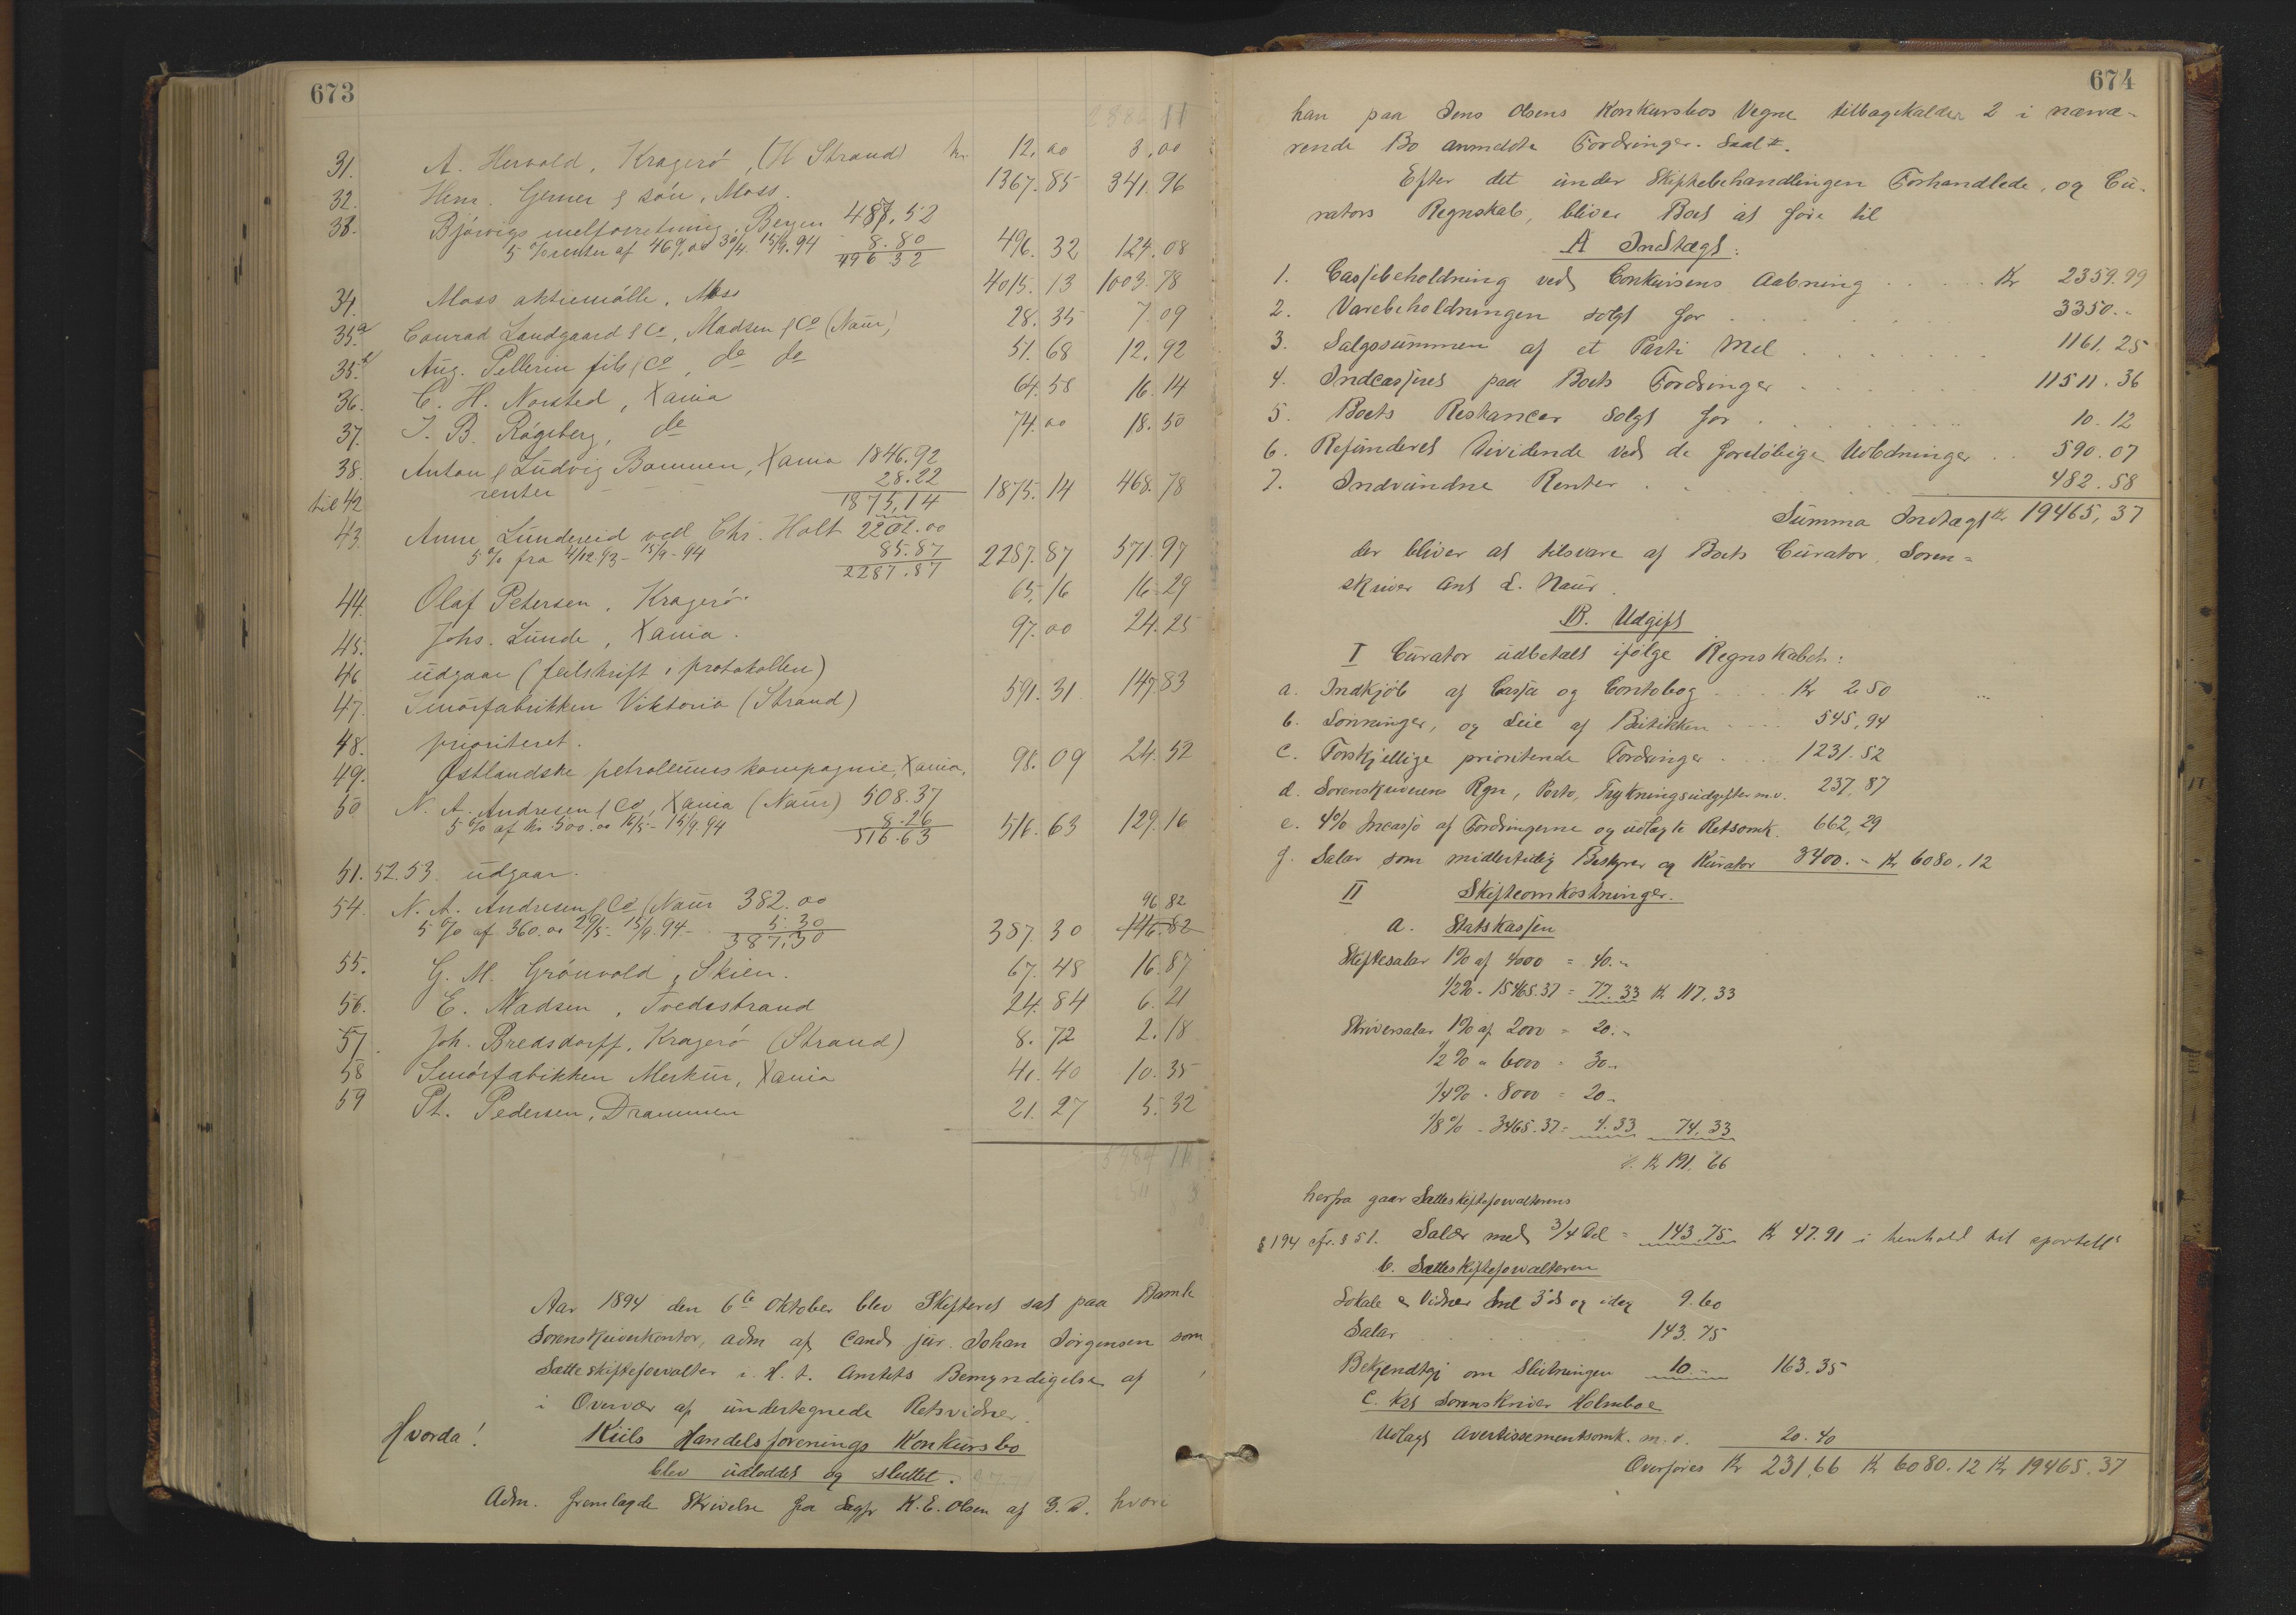 673
2886 11
31. A. Hervold, Kragerö, (H Strand) kr. 12.00 3.00
32. Henr. Gerner & sön, Moss. 1367.85 341.96
33. Bjórvigs melforretning, Bergen 487.52
5 % renter af 469.00 30/4 15/9.94 8.80 496.32 124.08
496 32
34. Moss aktiemölle, Moss 4015.13 1003.78
35.a Conrad Landgaard & Co, Madsen & Co (Naur) 28.35 7.09
35.b Aug. Pellerin fils & Co, do do 51.68 12.92
36. C. H. Norsted, Xania 64.58 16.14
37. I. B. Rágeberg, do 74.00 18.50
38. Anton & Ludvig Bammen, Xania 1846.92
til 42 renter 28.22 1875.14 468.78
1875,14
43. Anne Lundereid ved Chr. Holt 2202.00
5 % fra 4/12 93 - 15/9 - 94 85.87 2287.87 571.97
2287.87
44. Olaf Petersen, Kragerö. 65.16 16.29
45. Johs. Lunde, Xania. 97.00 24.25
46 udgaar (feilskrift i protokollen)
47. Smörfabrikken Viktoria (Strand) 591.31 147.83
48. prioriteret.
49. Østlandske petroleumskompagnie, Xania, 98.09 24.52
50 N. A. Andresen & Co, Xania (Naur) 508.37
5 % af kr. 500.00 16/5 - 15/9.94 8.26 516.63 129.16
516.63
51. 52. 53. udgaar.
54. N. A. Andresen & Co (Naur 382.00 96 82
5 % af 360.00 29/5 - 15/9.94 - 5.30 387.30 146.82
387,30
55. G. M. Grönvold, Skien. 67.48 16.87
56. E. Madsen, Tvedestrand 24.84 6.21
57. Joh. Bredsdorff, Kragerö (Strand) 8.72 2.18
58 Smörfabikken Merkur, Xania 41.40 10.35
59 Pt. Pedersen, Drammen 21.27 5.32
Aar 1894 den 6te Oktober blev Skifteret sat paa Bamle
Sorenskriverkontor, adm af Cand. jur. Johan Jörgensen som
Sætteskifteforvalter i. H. t. Amtets Bemyndigelse af
i Overvær af undertegnede Retsvidner.
Hvorda! Kiils Handelsforenings Konkursbo
blev udloddet og sluttet.
Adm. fremlagde Skrivelse fra Sagfr K. E. Olsen af G. D. hvori
674
han paa Jens Olsens Konkursbos Vegne tilbagekalder 2 i nærvæ-
rende Bo anmeldte Fordringer. Saal
Efter det under Skiftebehandlingen Forhandlede, og Cu-
rators Regnskab, bliver Boet at före til
A Indtægt:
1. Cassebeholdning ved Conkursens Aabning . . . . . Kr 2359.99
2. Varebeholdningen solgt for . . . . . . 3350.-
3. Salgssummen af et Parti Mel . . . . . . 1161.25
4. Indcasseret paa Boets Fordringer . . . . . 11511.36
5. Boets Restancer solgt for . . . . . . . . 10.12
6. Refunderet Dividende ved de forelöbige Udlodninger . . 590.07
7. Indvundne Renter . . . . . . 482.58
Summa Indtægt Kr 19465,37
der bliver at tilsvare af Boets Curator, Soren-
skriver Ant L. Naur.
B. Udgift
I Curator udbetalt ifölge Regnskabet:
a. Indkjöb af Cassa og Contobog . . . . Kr 2.50
b. Lönninger, og Leie af Butikken . . . . 545,94
c. Forskjellige prioriterede Fordringer . . . 1231.52
d. Sorenskriverens Rgn, Porto, Trykningsudgifter m.v. 237,87
e. 4% Incasso af Fordringerne og udlagte Retsomk. 662,29
f. Salær som midlertidig Bestyrer og Kurator 3400.- Kr 6080.12
II Skifteomkostninger.
a. Statskassen
Skiftesalær 1% af 4000 = 40.-
1/2% - 15465.37 = 77.33 Kr 117.33
Skriversalær 1% af 2000 = 20.-
1/2% " 6000 = 30.-
1/4% - 8000 = 20.-
1/8% - 3465.37 = 4.33 74.33
Kr 191.66
herfra gaar Sætteskifteforvalterens
§ 194 cfr. § 51. Salær med 3/4 Del = 143.75 Kr 47.91 i henhold til sportell
b. Sætteskifteforvalteren
Lokale & Vidner 3 ds og idag 9.60
Salær . . . . . 143.75
Bekjendtgj om Slutningen 10.- 163.35
c. Kst Sorenskriver Holmboe
Udlagt Avertissementsomk. m.v. 20.40
Overföres Kr 231,66 Kr 6080.12 Kr 19465.37